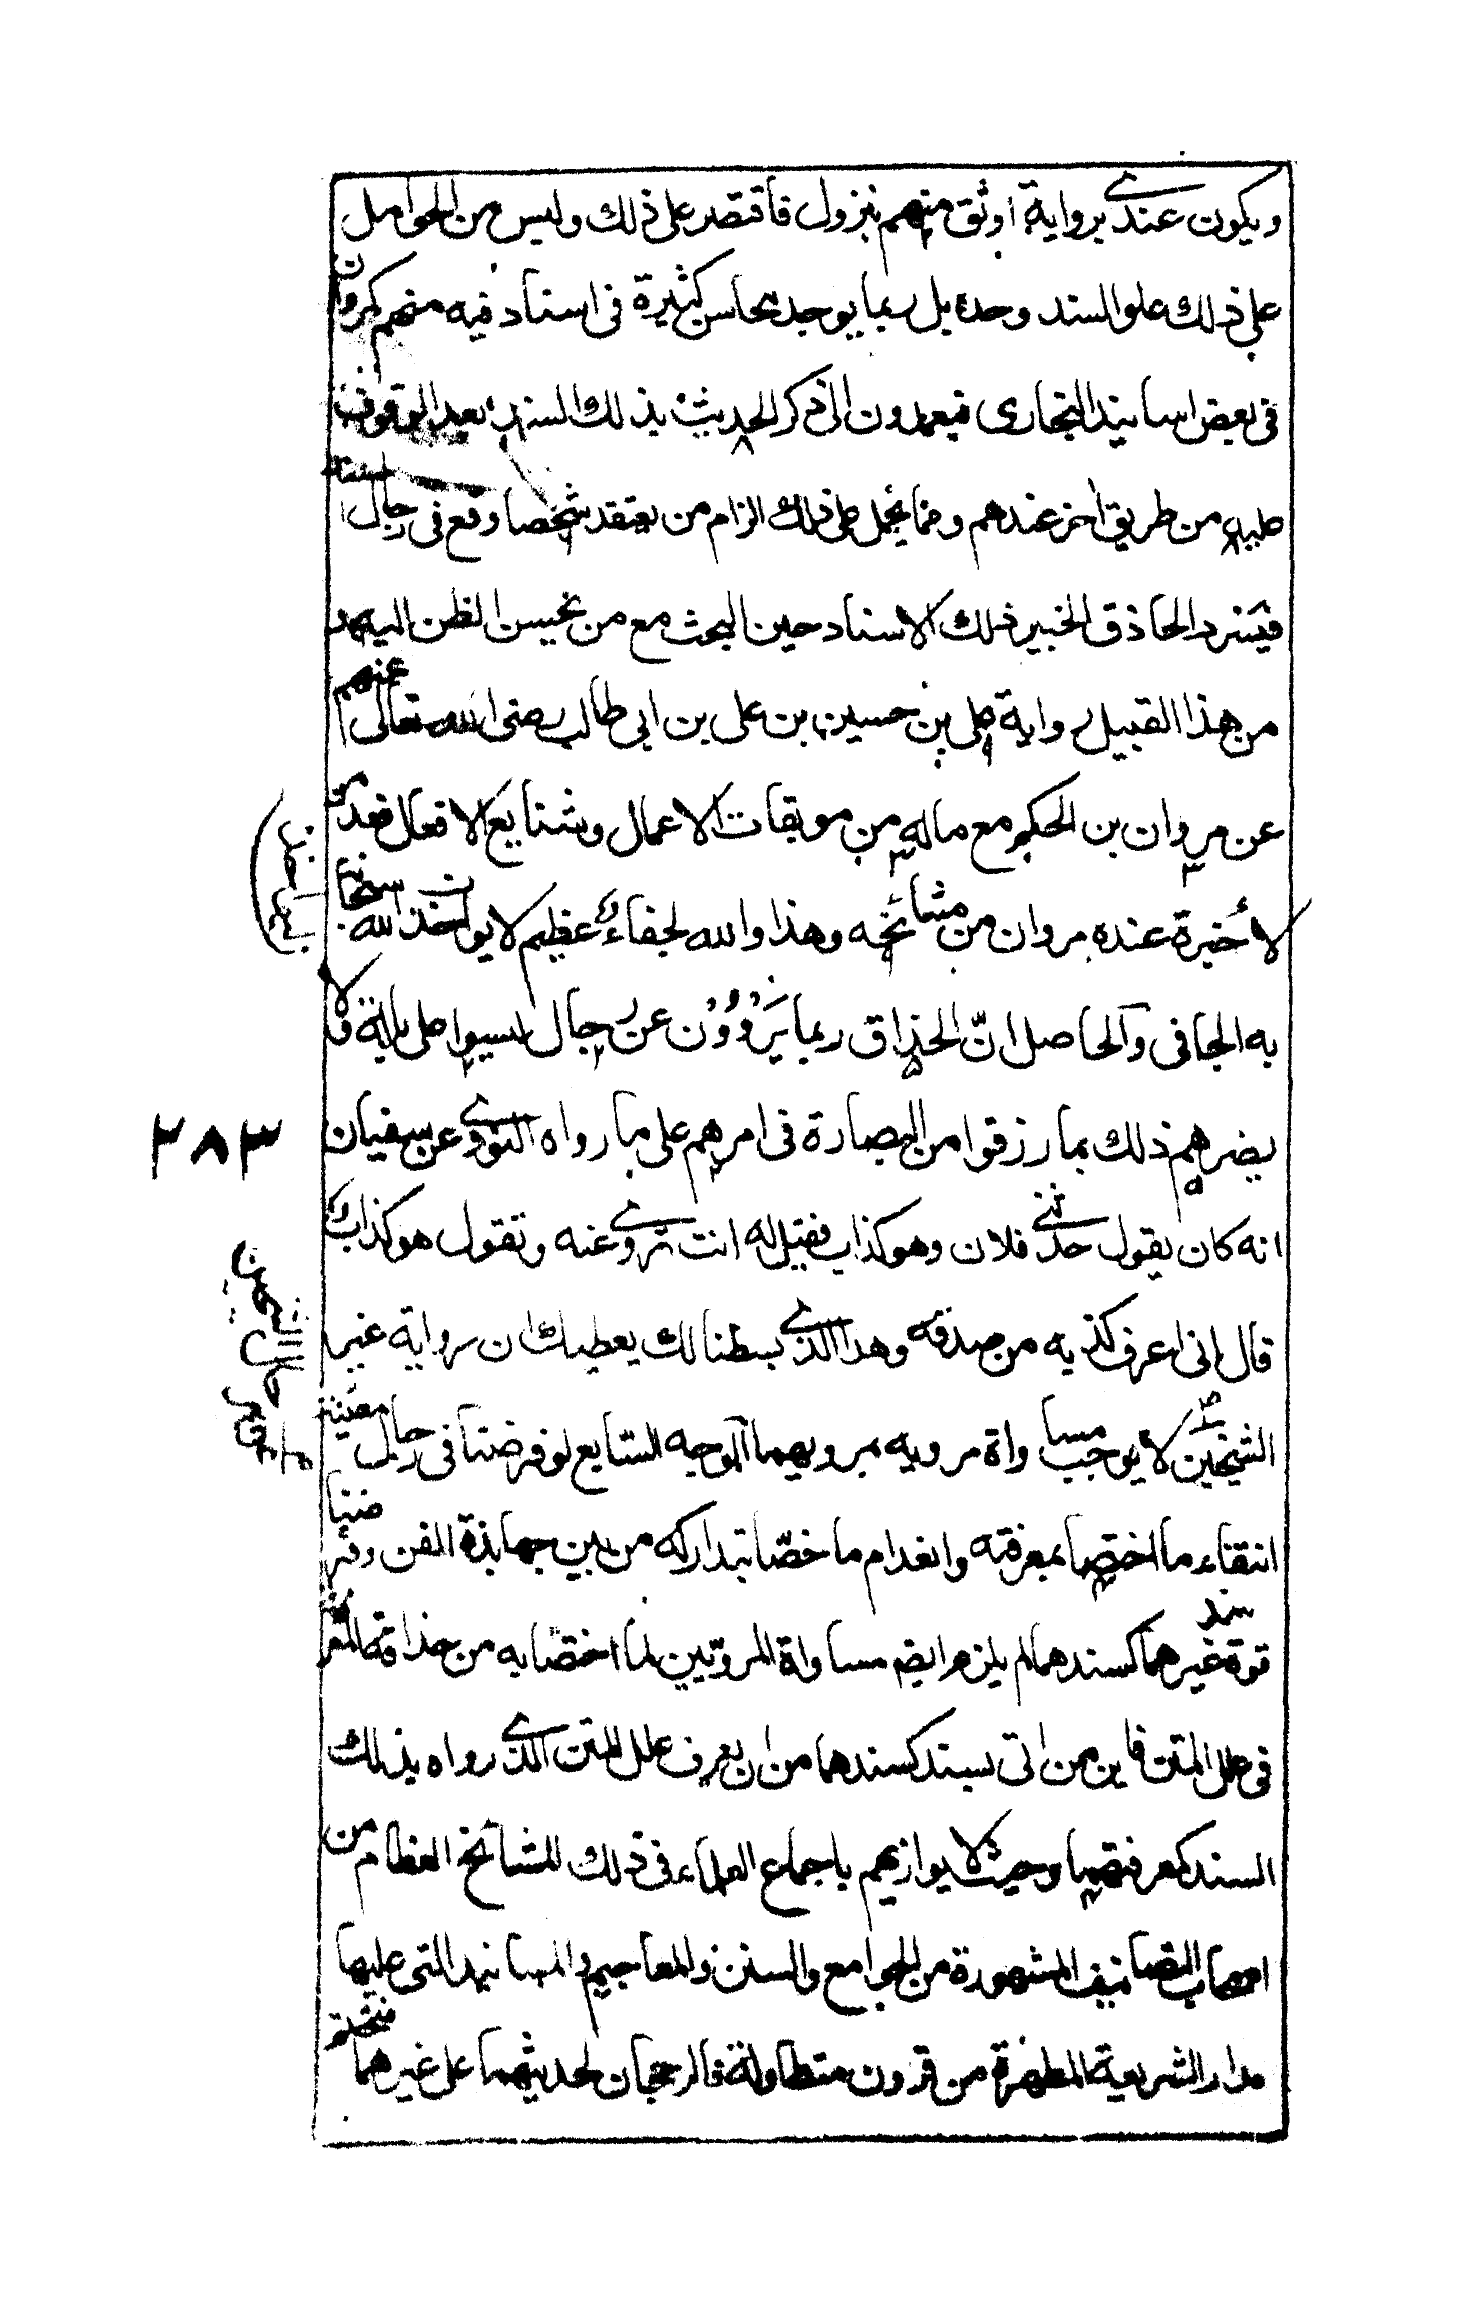 ويكون عندي برواية أوثق منهم بنزول فاقتصر على ذلك وليس من الحوامل
على ذلك علو السند وحده بل ربما يوجد محاسن كثيرة في اسناد فيه منهم كمروان
في بعض اسانيد البخاري فيعمدون الى ذكر الحديث بذلك السند بعد الوقوف
عليه من طريق اخر عندهم ومما يحمل على ذلك الزام من يعتقد شخصا وقع في رجال اسناد
فيسرد الحاذق الخبير ذلك الاسناد حين البحث مع من يحسن الظن اليه
من هذا القبيل رواية علي بن حسين بن علي بن ابي طالب رضى الله تعالى عنهم
عن مروان بن الحكم مع ماله من موبقات الاعمال وشنايع الافعال فعد من
لا خبرة عنده مروان من مشائخه وهذا والله لجفاء عظيم لا يواخذ الله سبحانه
به الجافي والحاصل انّ الحذاق ربما يَرْوُوْن عن رجال ليسوا على بابة ولا
يضرهم ذلك بما رزقوا من البصارة في امرهم على ما رواه النووي عن سفيان
انه كان يقول حدثني فلان وهو كذاب فقيل له انت تروي عنه وتقول هو كذاب
قال إني اعرف كذبه من صدقه وهذا الذي بسطنا لك يعطيك ان رواية غير
الشيخين لا يوجب مساواة مرويه بمرويهما الموجه الشايع لو فرضنا في رجال معينة
انتقاء ما اختصا بمعرفته وانعدام ما خصّا بتداركه من بين جهابذة الفن وفرضنا
قوة سند غيرهما كسندهما لم يلزم ايضا مساواة المرويّين لما اختصّا به من حذاقة المعرفة
في علل المتن فاين من اتى بسند كسندهما من ان يعرف علل المتن الذي رواه بذلك
السند كمعرفتهما وحيث لا يوازيهم باجماع العلماء في ذلك المشائخ العظام من
اصحاب التصانيف المشهورة من الجوامع والسنن والمعاجيم والمسانيد التي عليها
مدار الشريعة المطهرة من قرون متطاولة فالرجحان لحديثهما على غيرهما
٢٨٣